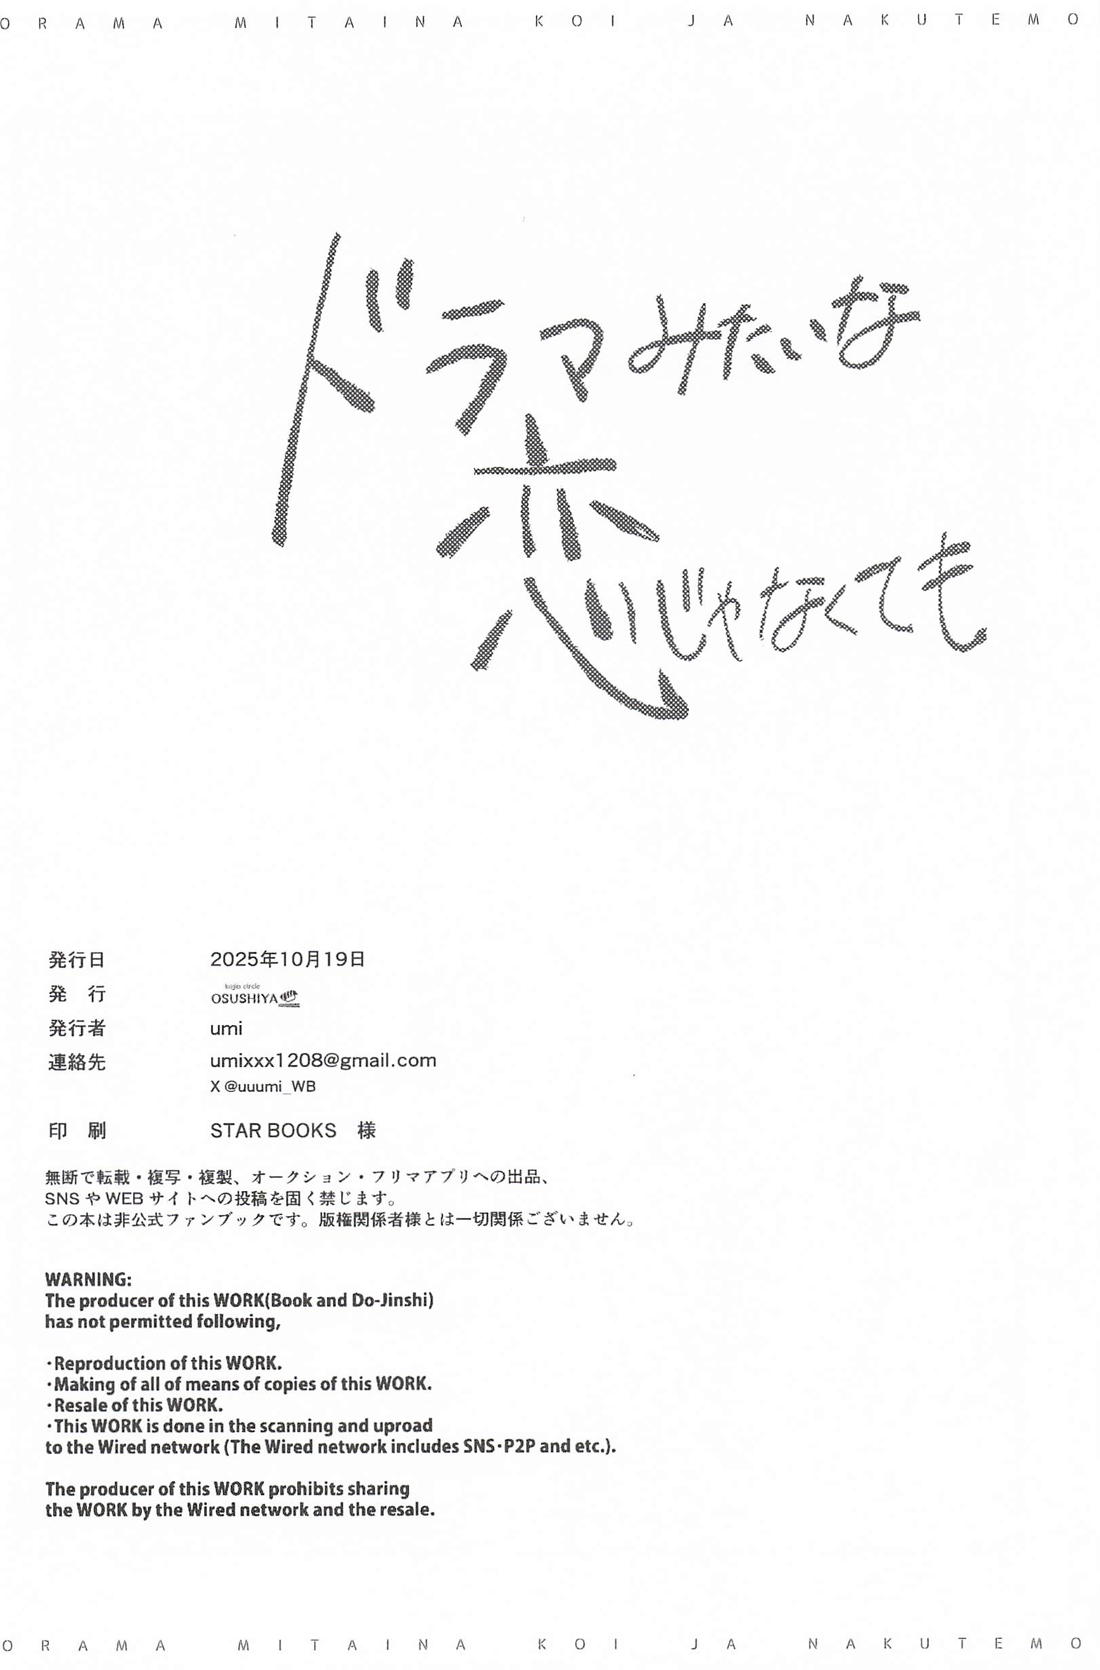 ORAMA MITAINA KOI JA NAKUTEMO
ドラマみたいな
恋じゃなくても
発行日 2025年10月19日
発 行 kojin circle OSUSHIYA
発行者 umi
連絡先 umixxx1208@gmail.com
X @uuumi_WB
印 刷 STAR BOOKS 様
無断で転載・複写・複製、オークション・フリマアプリへの出品、
SNS や WEB サイトへの投稿を固く禁じます。
この本は非公式ファンブックです。版権関係者様とは一切関係ございません。
WARNING:
The producer of this WORK(Book and Do-Jinshi)
has not permitted following,
・Reproduction of this WORK.
・Making of all of means of copies of this WORK.
・Resale of this WORK.
・This WORK is done in the scanning and uproad
to the Wired network (The Wired network includes SNS・P2P and etc.).
The producer of this WORK prohibits sharing
the WORK by the Wired network and the resale.
ORAMA MITAINA KOI JA NAKUTEMO